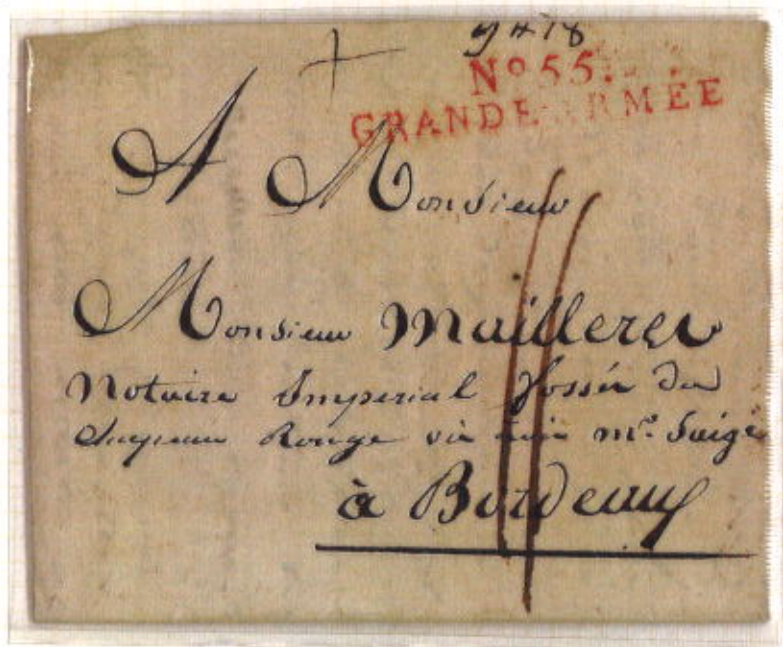 No 55.
GRANDE ARMÉE
A Monsieur
Monsieur Maillères
Notaire Imperial fossés du
Chapeau Rouge vis à vis mr. Saige
à Bordeaux